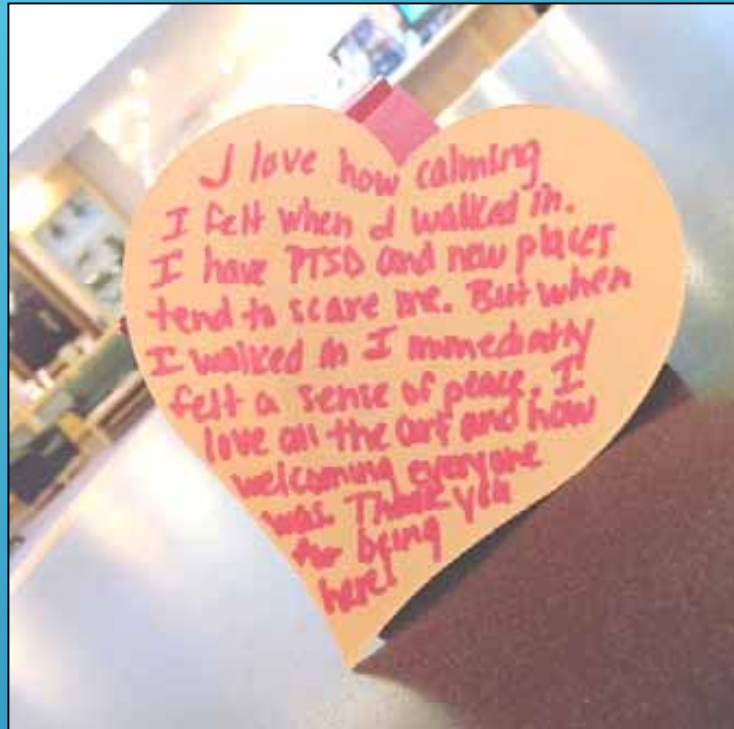 I love how calming
I felt when I walked in.
I have PTSD and new places
tend to scare me. But when
I walked in I immediatly
felt a sense of peace. I
love all the art and how
welcoming everyone
was. Thank you
for being
here!